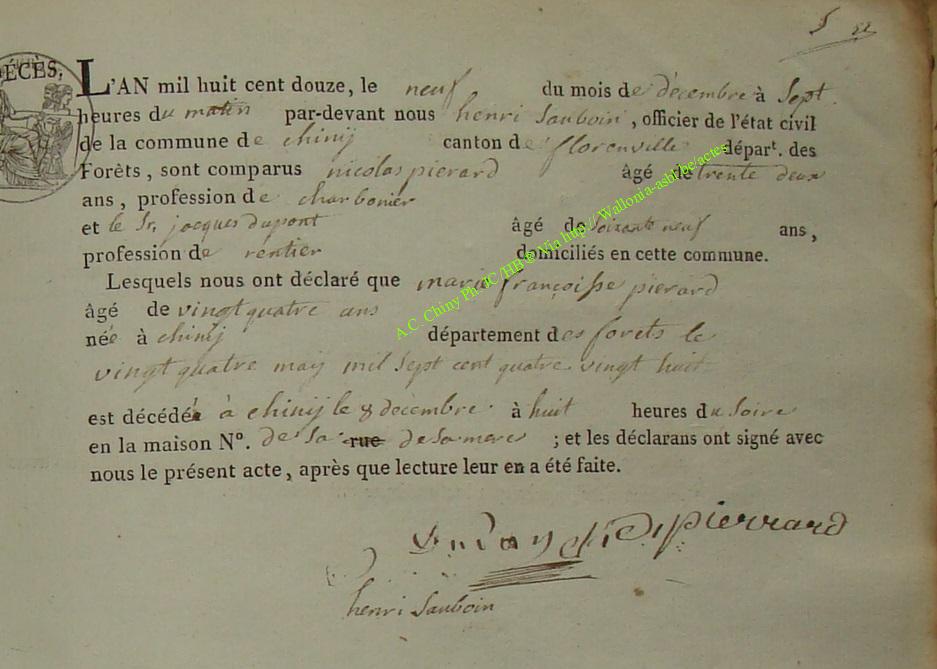 5
DÉCÈS,
L'AN mil huit cent douze, le neuf du mois de décembre à Sept
heures du matin par-devant nous henri Sauboin, officier de l'état civil
de la commune de chinij canton de florenville départ. des
Forêts, sont comparus nicolas pierard âgé de trente deux
ans, profession de charbonier
et le Sr. jacques dupont âgé de soixante neuf ans,
profession de rentier domiciliés en cette commune.
Lesquels nous ont déclaré que marie françoisse pierard
âgé de vingt quatre ans
née à chinij département des forets le
vingt quatre maij mil sept cent quatre vingt huit
est décédée à chinij le 8 décembre à huit heures du soire
en la maison N°. de sa rue de sa mere ; et les déclarans ont signé avec
nous le présent acte, après que lecture leur en a été faite.
pierrard
henri Sauboin
A.C. Chiny Ph JC/HB © Via http// Wallonia-asbl.be/actes